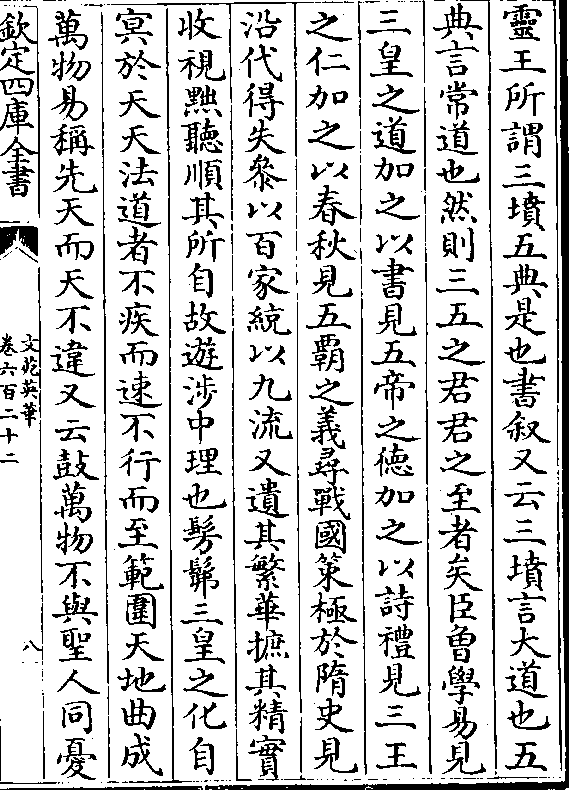 靈王所謂三墳五典是也書叙又云三墳言大道也五
典言常道也然則三五之君君之至者矣臣曾學易見
三皇之道加之以書見五帝之徳加之以詩禮見三王
之仁加之以春秋見五霸之義尋戰國策極於隋史見
沿代得失叅以百家統以九流又遺其繁華摭其精實
收視黙聽順其所自故遊涉中理也髣髴三皇之化自
冥於天天法道者不疾而速不行而至範圍天地曲成
萬物易稱先天而天不違又云鼓萬物不與聖人同憂
欽定四庫全書
文苑英華
卷六百二十二
八